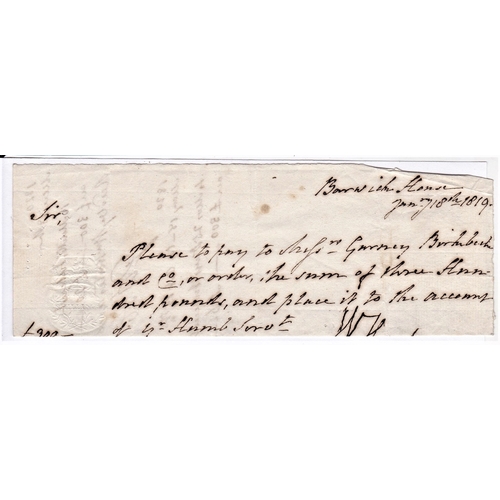 Barwick House
Jany 18th 1819.
Sir,
Please to pay to Messrs Gurney Birkbeck
and Co, or order, the sum of three Hun-
dred pounds, and place it to the account
of yr Humb Servt